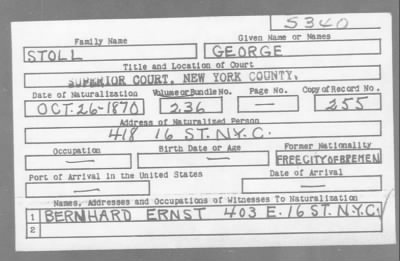 S340
Family Name Given Name or Names
STOLL GEORGE
Title and Location of Court
SUPERIOR COURT, NEW YORK COUNTY.
Date of Naturalization Volume or Bundle No. Page No. Copy of Record No.
OCT. 26-1870 236 — 255
Address of Naturalized Person
418 16 ST. N.Y.C.
Occupation Birth Date or Age Former Nationality
— — FREE CITY OF BREMEN
Port of Arrival in the United States Date of Arrival
— —
Names, Addresses and Occupations of Witnesses To Naturalization
1 BERNHARD ERNST 403 E. 16 ST. N.Y.C.
2